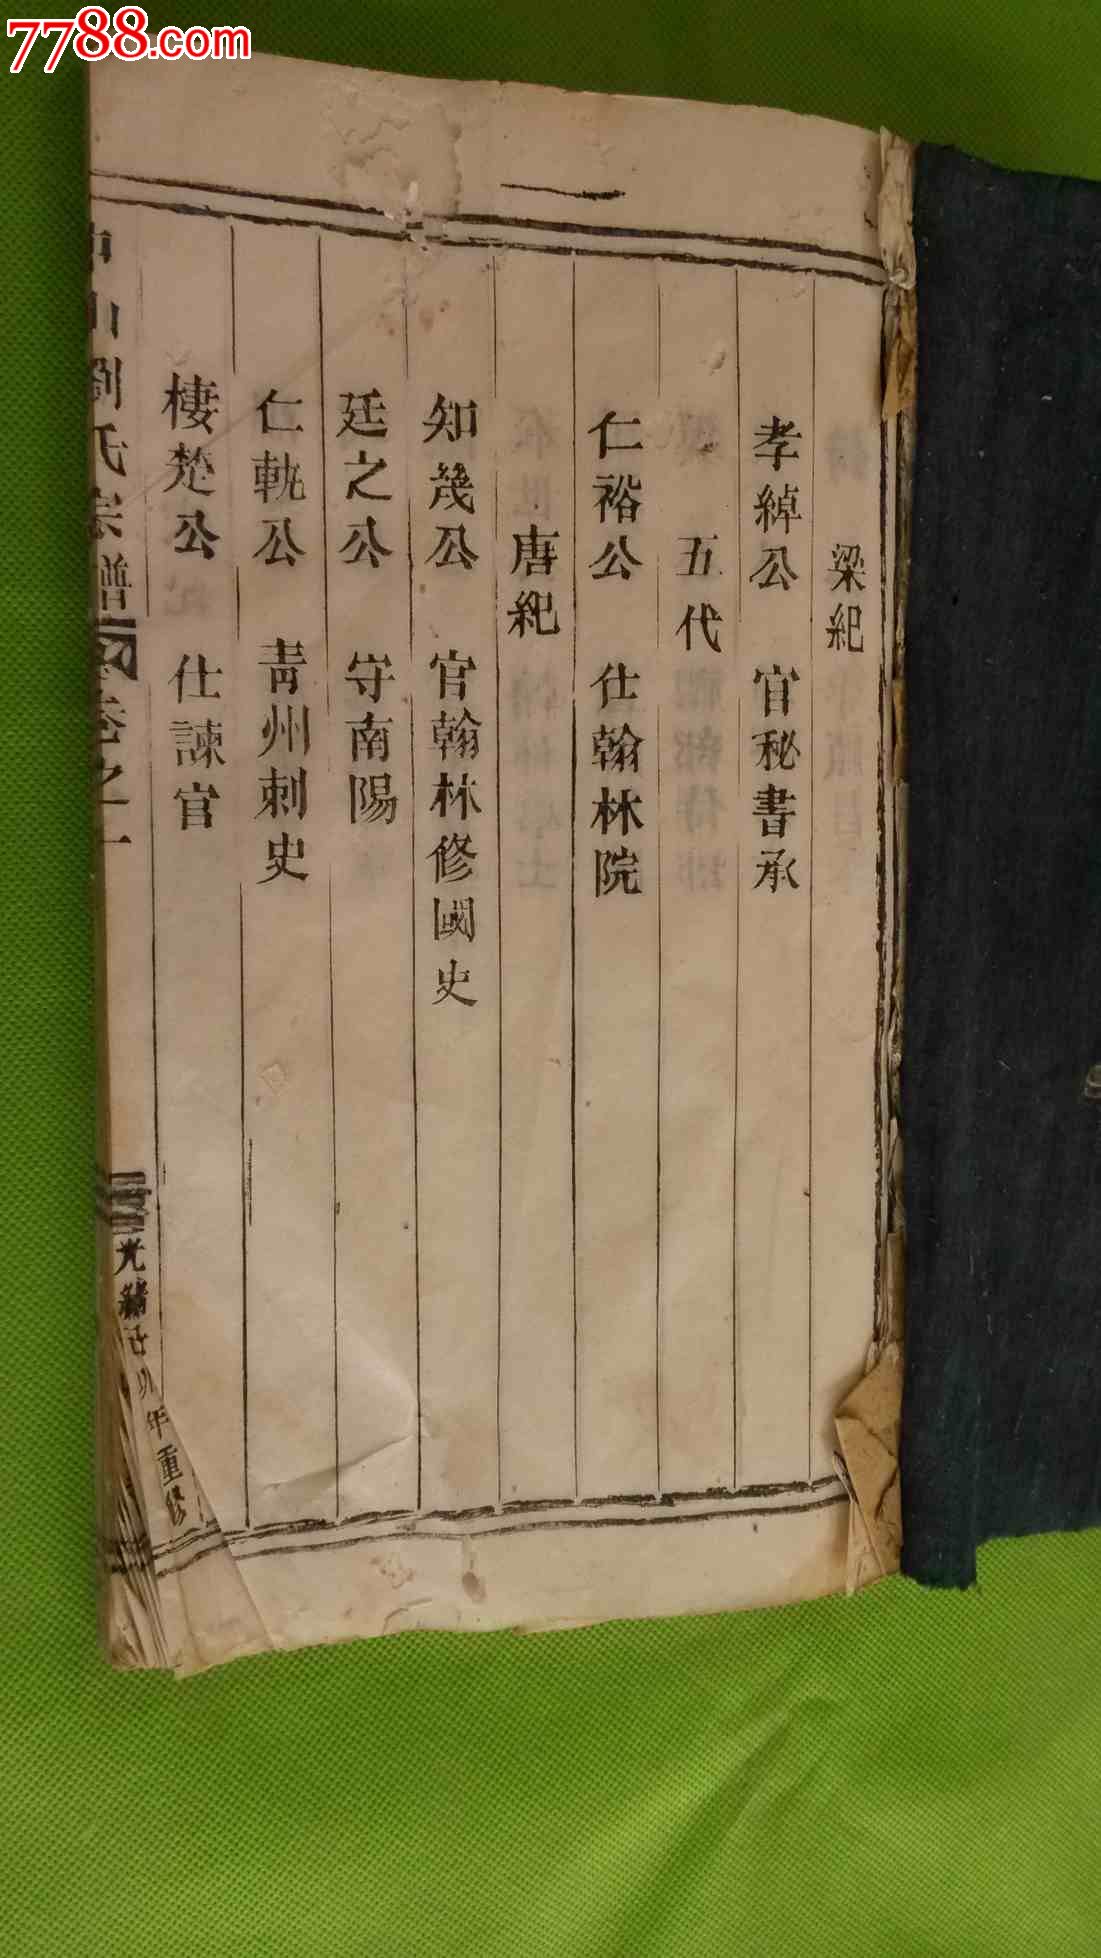 7788.com
一
梁紀
孝綽公 官秘書承
五代
仁裕公 仕翰林院
唐紀
知幾公 官翰林修國史
廷之公 守南陽
仁軌公 青州刺史
棲楚公 仕諫官
中山劉氏宗譜 卷之一
光緒 年重修